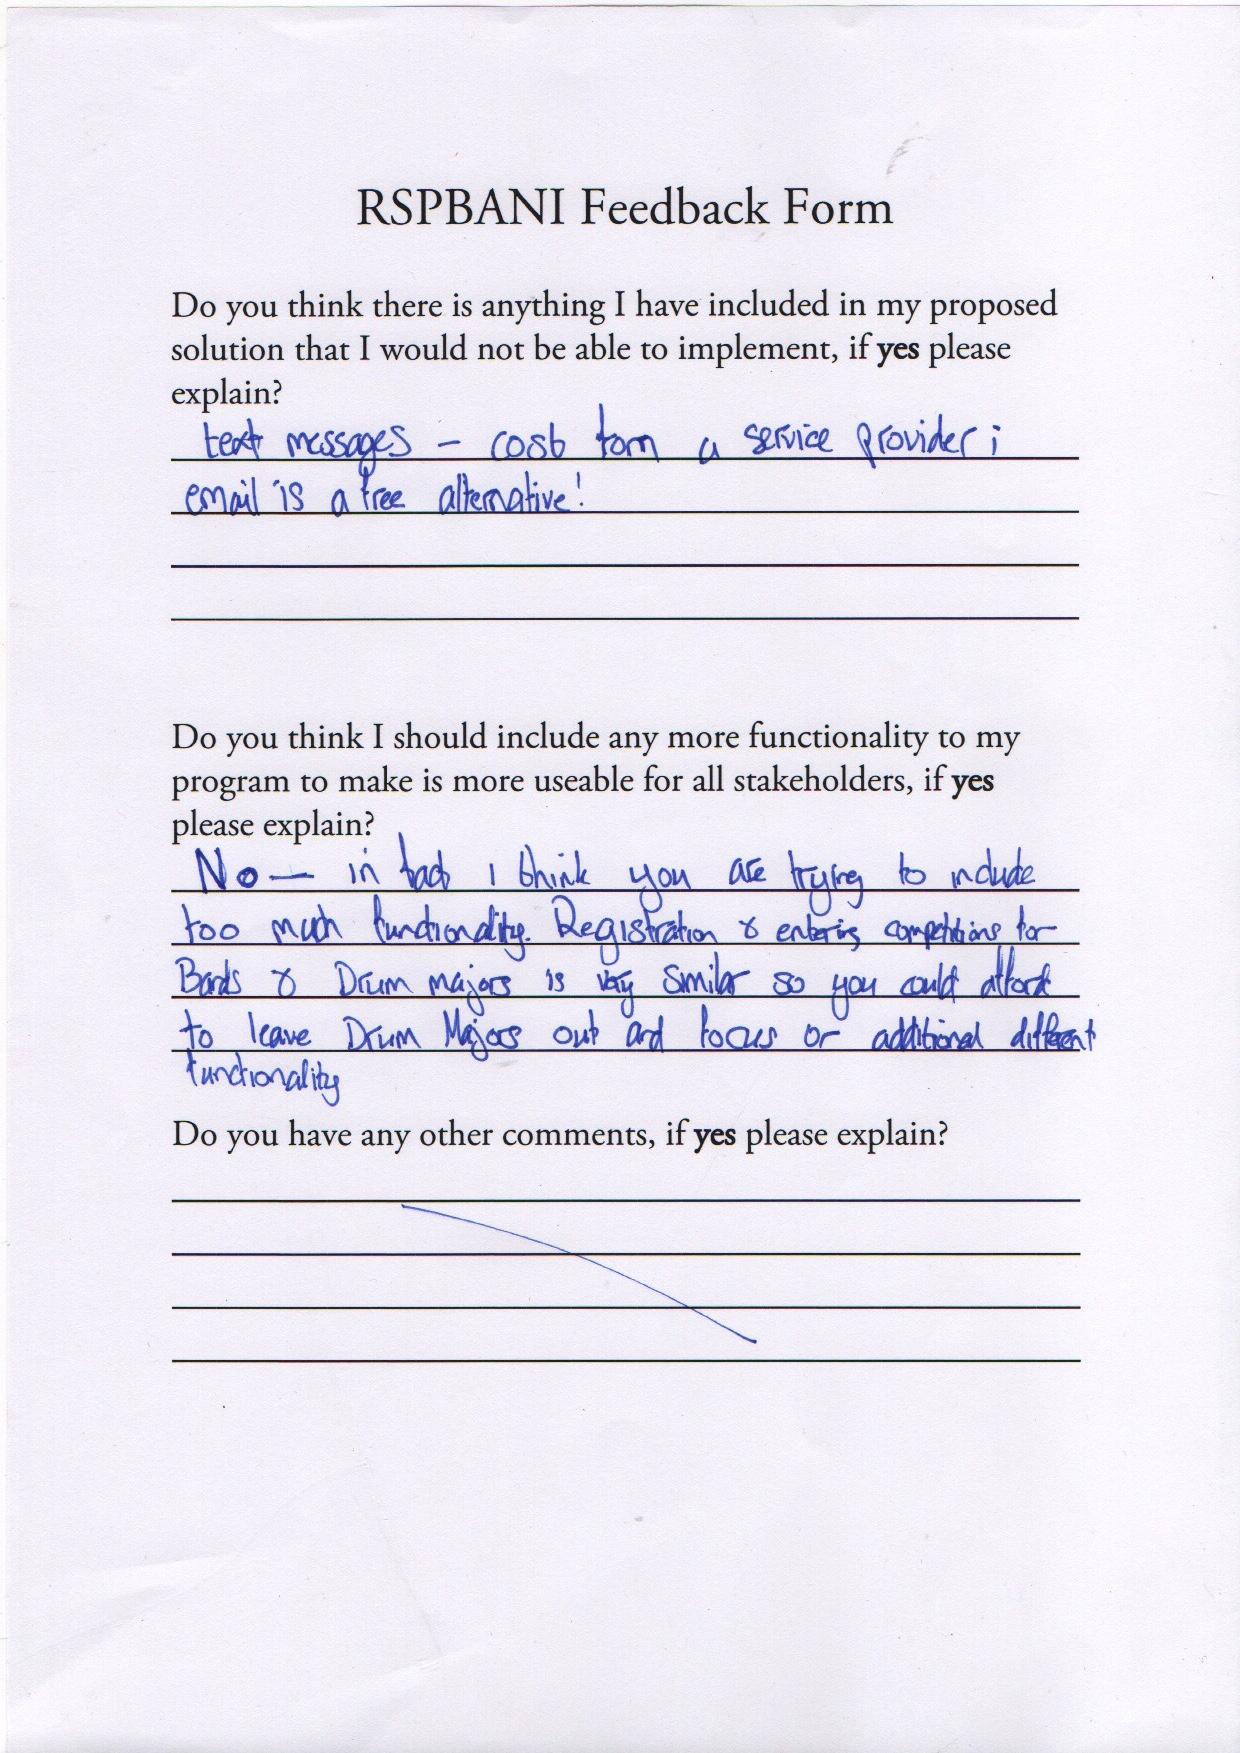 RSPBANI Feedback Form
Do you think there is anything I have included in my proposed
solution that I would not be able to implement, if yes please
explain?
text messages - cost from a service provider ;
email is a free alternative!
Do you think I should include any more functionality to my
program to make is more useable for all stakeholders, if yes
please explain?
No - in fact I think you are trying to include
too much functionality. Registration & entering competitions for
Bands & Drum majors is very similar so you could afford
to leave Drum Majors out and focus on additional different
functionality
Do you have any other comments, if yes please explain?